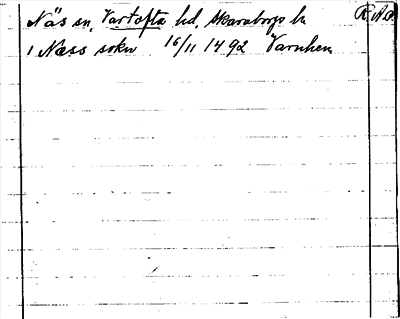 Näs sn, Vartofta hd, Skaraborgs ln RAp
i Næss sokn 16/11 1492 Varnhem